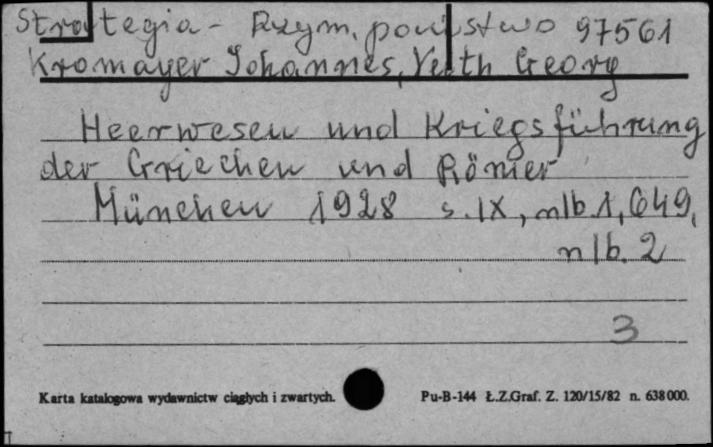 Strategia - Rzym. państwo 97561
Kromayer Johannes, Veith Georg
Heerwesen und Kriegsführung
der Griechen und Römer
München 1928 s. IX, nlb. 1, 649,
nlb. 2
3
Karta katalogowa wydawnictw ciągłych i zwartych. Pu-B-144 Ł.Z.Graf. Z. 120/15/82 n. 638000.